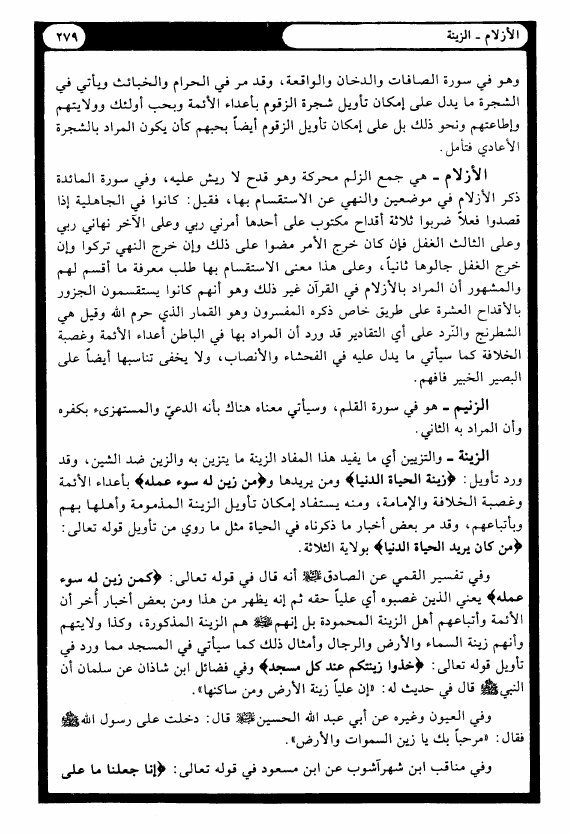 الأزلام - الزينة
٢٧٩
وهو في سورة الصافات والدخان والواقعة، وقد مر في الحرام والخبائث ويأتي في
الشجرة ما يدل على إمكان تأويل شجرة الزقوم بأعداء الأئمة وبحب أولئك وولايتهم
وإطاعتهم ونحو ذلك بل على إمكان تأويل الزقوم أيضاً بحبهم كأن يكون المراد بالشجرة
الأعادي فتأمل.
الأزلام - هي جمع الزلم محركة وهو قدح لا ريش عليه، وفي سورة المائدة
ذكر الأزلام في موضعين والنهي عن الاستقسام بها، فقيل: كانوا في الجاهلية إذا
قصدوا فعلاً ضربوا ثلاثة أقداح مكتوب على أحدها أمرني ربي وعلى الآخر نهاني ربي
وعلى الثالث الغفل فإن كان خرج الأمر مضوا على ذلك وإن خرج النهي تركوا وإن
خرج الغفل جالوها ثانياً، وعلى هذا معنى الاستقسام بها طلب معرفة ما أقسم لهم
والمشهور أن المراد بالأزلام في القرآن غير ذلك وهو أنهم كانوا يستقسمون الجزور
بالأقداح العشرة على طريق خاص ذكره المفسرون وهو القمار الذي حرم الله وقيل هي
الشطرنج والنّرد على أي التقادير قد ورد أن المراد بها في الباطن أعداء الأئمة وغصبة
الخلافة كما سيأتي ما يدل عليه في الفحشاء والأنصاب، ولا يخفى تناسبها أيضاً على
البصير الخبير فافهم.
الزنيم - هو في سورة القلم، وسيأتي معناه هناك بأنه الدعيّ والمستهزىء بكفره
وأن المراد به الثاني.
الزينة - والتزيين أي ما يفيد هذا المفاد الزينة ما يتزين به والزين ضد الشين، وقد
ورد تأويل: ﴿زينة الحياة الدنيا﴾ ومن يريدها و﴿من زين له سوء عمله﴾ بأعداء الأئمة
وغصبة الخلافة والإمامة، ومنه يستفاد إمكان تأويل الزينة المذمومة وأهلها بهم
وبأتباعهم، وقد مر بعض أخبار ما ذكرناه في الحياة مثل ما روي من تأويل قوله تعالى:
﴿من كان يريد الحياة الدنيا﴾ بولاية الثلاثة.
وفي تفسير القمي عن الصادق أنه قال في قوله تعالى: ﴿كمن زين له سوء
عمله﴾ يعني الذين غصبوه أي علياً حقه ثم إنه يظهر من هذا ومن بعض أخبار أُخر أن
الأئمة وأتباعهم أهل الزينة المحمودة بل إنهم هم الزينة المذكورة، وكذا ولايتهم
وأنهم زينة السماء والأرض والرجال وأمثال ذلك كما سيأتي في المسجد مما ورد في
تأويل قوله تعالى: ﴿خذوا زينتكم عند كل مسجد﴾ وفي فضائل ابن شاذان عن سلمان أن
النبي ﷺ قال في حديث له: «إن علياً زينة الأرض ومن ساكنها».
وفي العيون وغيره عن أبي عبد الله الحسين قال: دخلت على رسول الله ﷺ
فقال: «مرحباً بك يا زين السموات والأرض».
وفي مناقب ابن شهرآشوب عن ابن مسعود في قوله تعالى: ﴿إنا جعلنا ما على